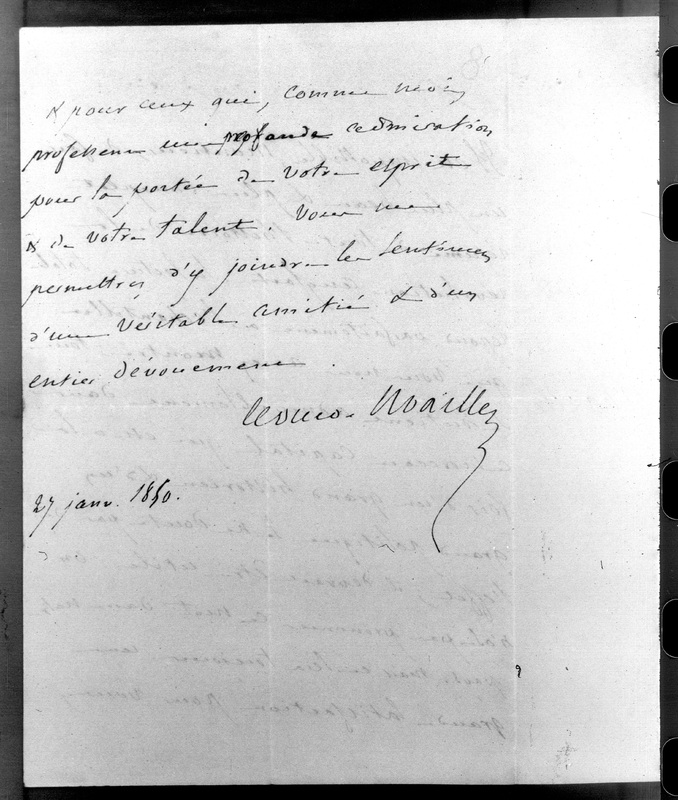 8
& pour ceux qui, comme moi,
professent une profonde admiration
pour la portée de votre esprit
& de votre talent. Vous me
permettrez d'y joindre les sentimens
d'une véritable amitié & d'un
entier dévouement.
Noailles
27 janv. 1850.